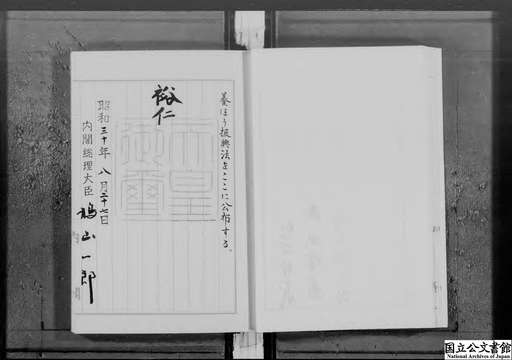 養ほう振興法をここに公布する。
裕仁
天皇御璽
昭和三十年八月二十七日
内閣総理大臣 鳩山一郎
国立公文書館
National Archives of Japan